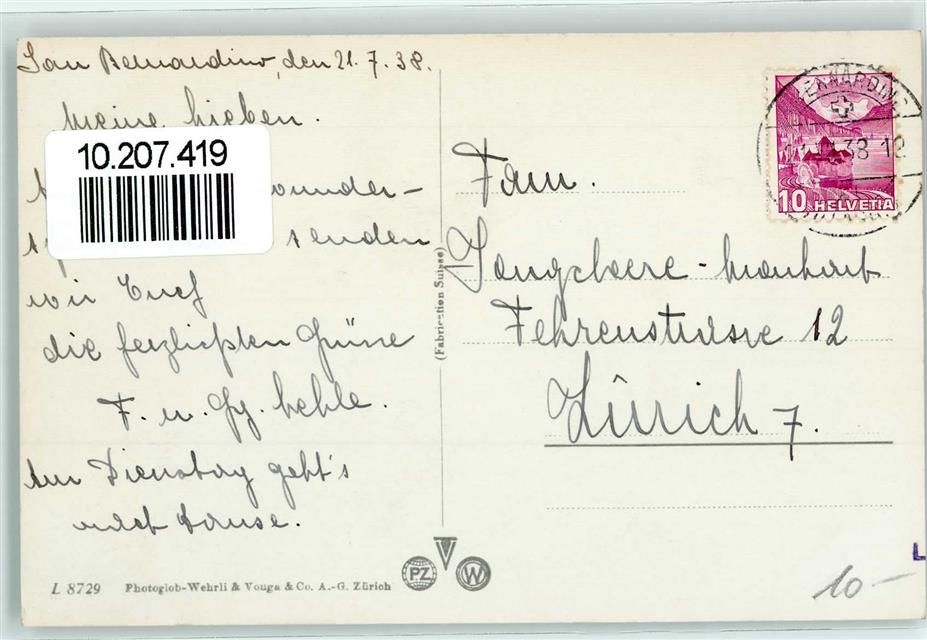 San Bernardino, den 21.7.38.
Meine Lieben.
10.207.419
wunder-
senden
wir Euch
die herzlichsten Grüsse
F. u. Gg.
Am Dienstag geht's
nach Hause.
Fam.
Fehrenstrasse 12
Zürich 7.
(Fabrication Suisse)
BERNARDINO
38-18
10 HELVETIA
L 8729 Photoglob-Wehrli & Vouga & Co. A.-G. Zürich
PZ V W
L
10-